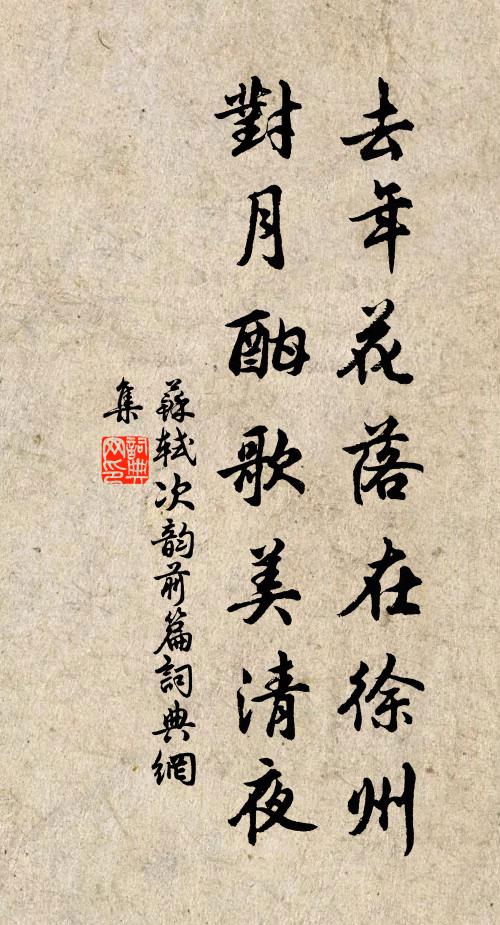 去年花落在徐州
對月酣歌美清夜
蘇軾次韵前篇詞典網
集
詞典网印